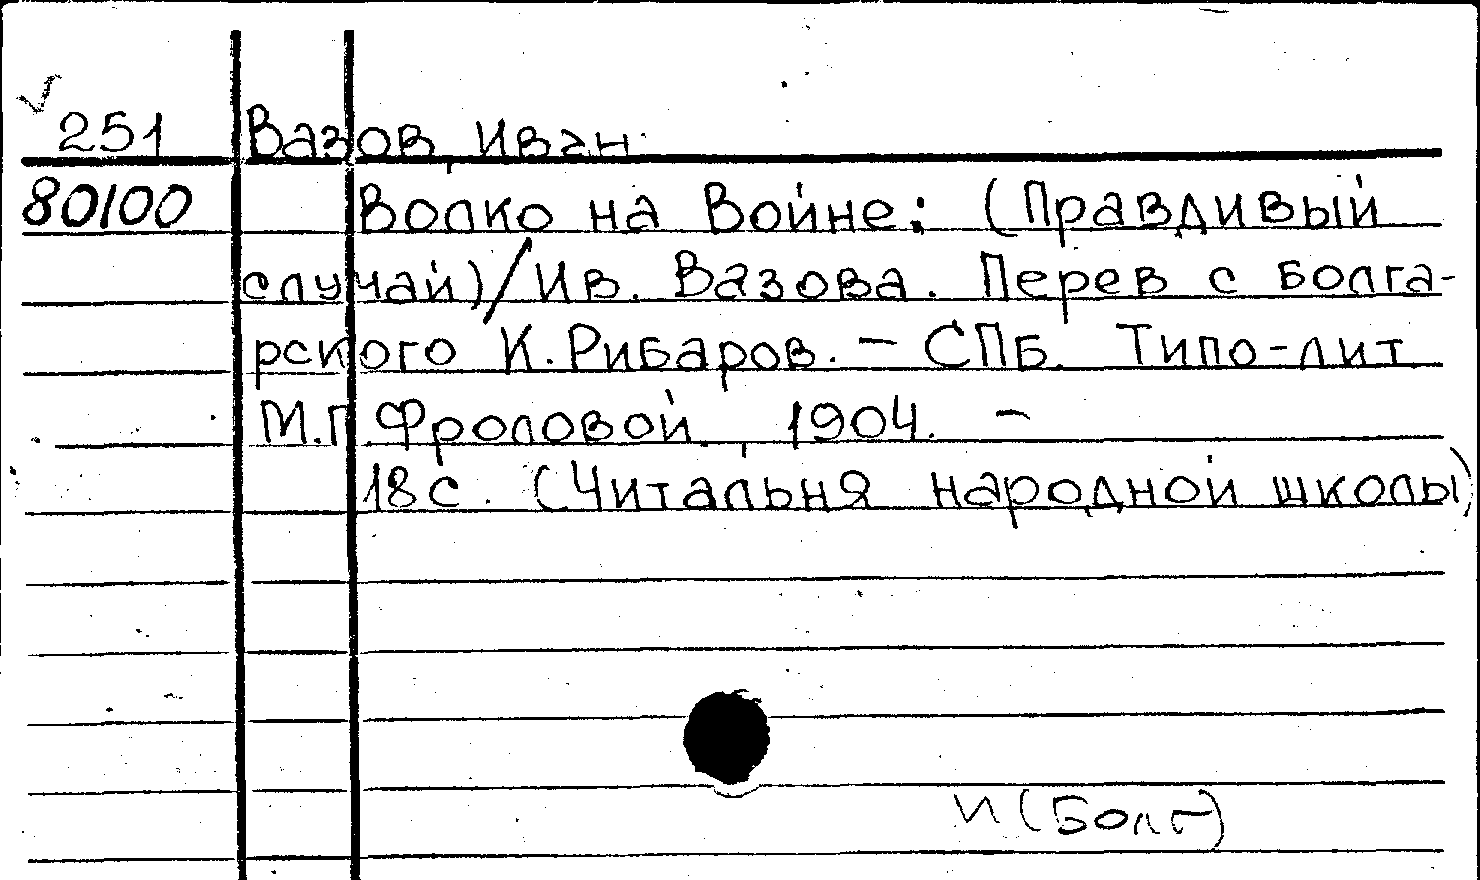 251 Вазов, Иван.
80100 Волко на Войне: (Правдивый
случай)/Ив. Вазова. Перев с болга-
рского К. Рибаров. - СПб. Типо-лит
М.П. Фроловой, 1904. -
18с. (Читальня народной школы)
И (Болг)